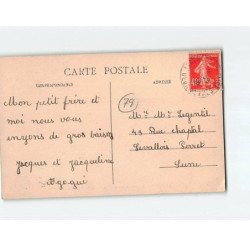 CARTE POSTALE
CORRESPONDANCE
ADRESSE
Mon petit frère et
moi nous vous
envoyons de gros baisers
Jacques et Jacqueline
(78)
Mr Mme Legentil
43 Rue Chaptal
Levallois Perret
Seine